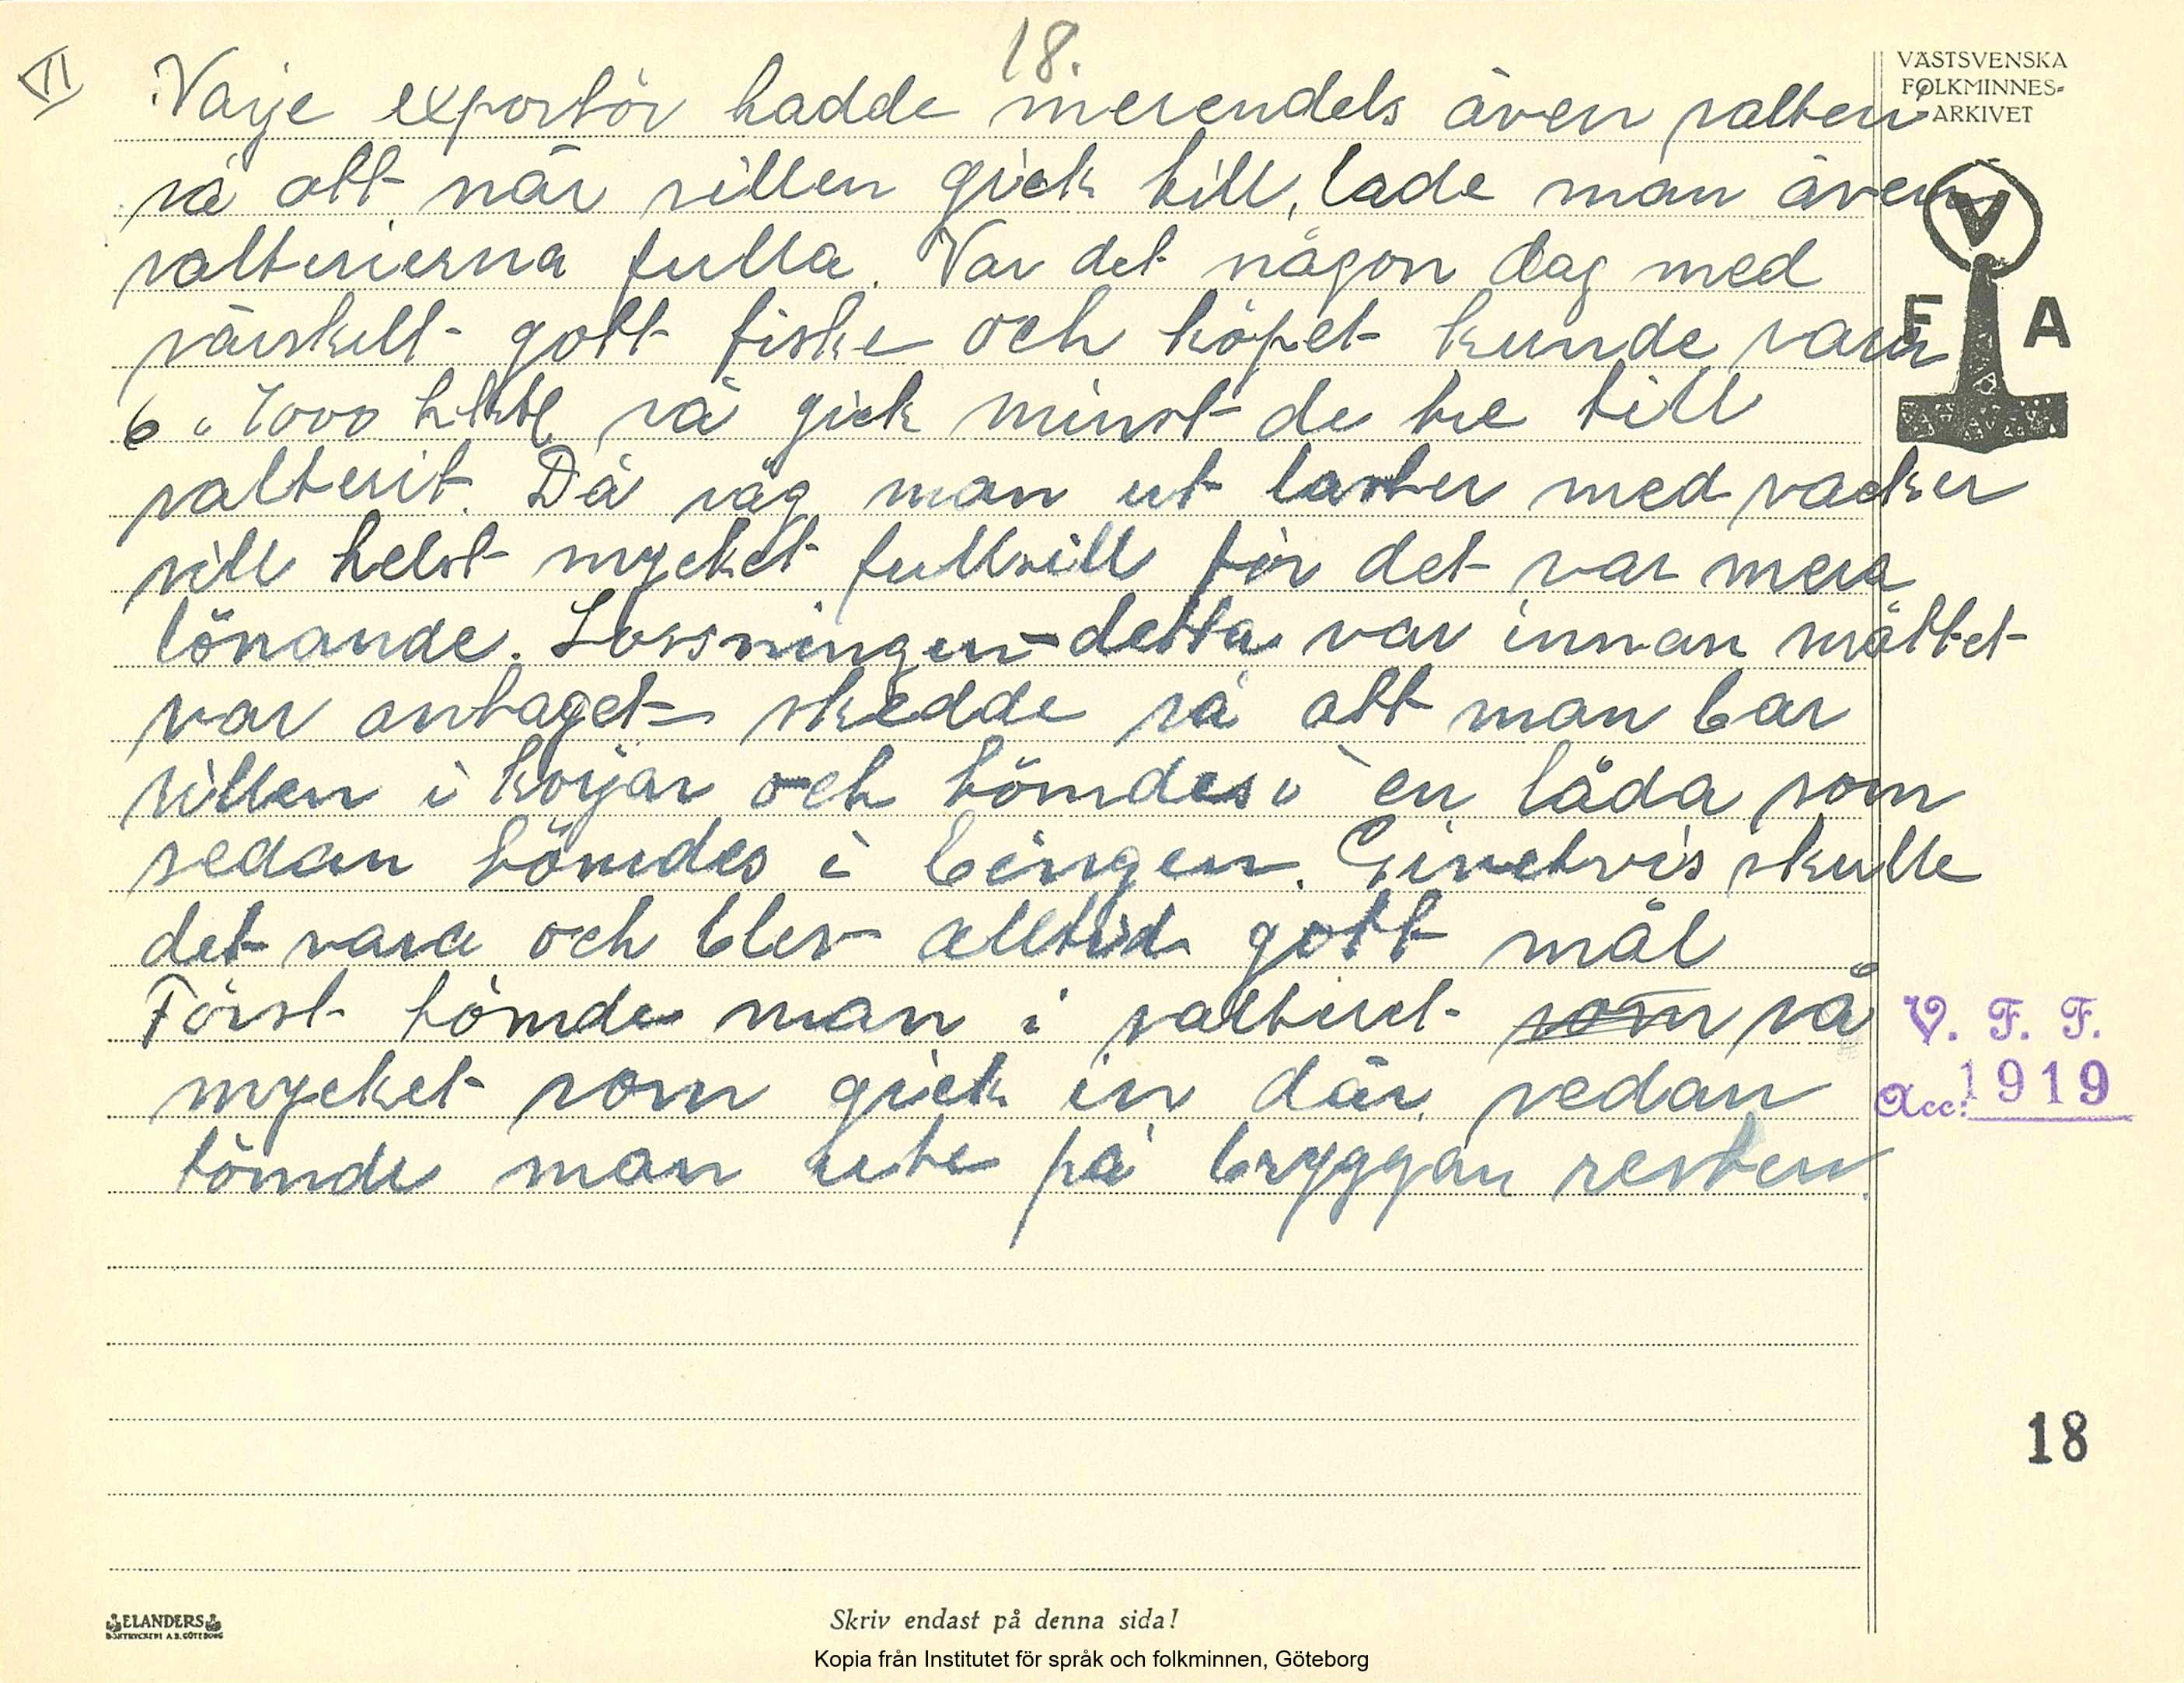 18.
VI
VÄSTSVENSKA
FOLKMINNES-
ARKIVET
Varje exportör hadde merendels även salteri
så att när sillen gick till, lade man även
salterierna fulla. Var det någon dag med
särskilt gott fiske och köpet kunde vara
6 á 7000 hkbl så gick minst de tre till
salterit. Då såg man ut laster med vacker
sill helst mycket fullsill för det var mera
lönande. Lossningen – detta var innan måttet
var antaget – skedde så att man bar
sillen i korjar och tömdes i en låda som
sedan tömdes i bingen. Givetvis skulle
det vara och blev alltid gott mål
Först tömde man i salteriet som så
mycket som gick in där, sedan
tömde man ute på bryggan resten.
V
F A
V. F. F.
Acc: 1919
18
ELANDERS
BOKTRYCKERI A.B. GÖTEBORG
Skriv endast på denna sida!
Kopia från Institutet för språk och folkminnen, Göteborg